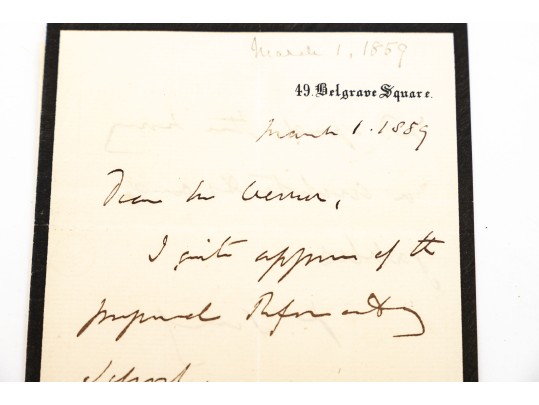 March 1, 1859
49. Belgrave Square.
March 1. 1859
Dear Mr
I quite approve of the
proposed Reformatory
School